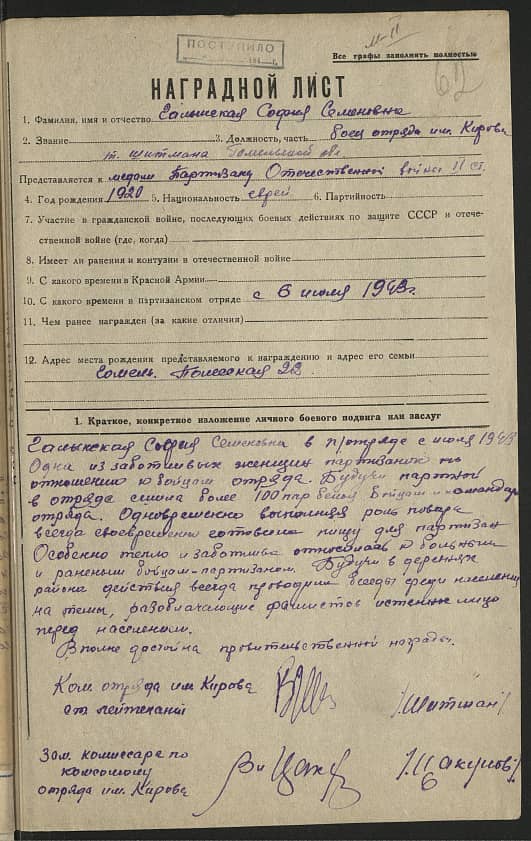 ПОСТУПИЛО
Все графы заполнить полностью
62
НАГРАДНОЙ ЛИСТ
1. Фамилия, имя и отчество Галынская София Семеновна
2. Звание 3. Должность, часть боец отряда им. Кирова
т. Шитмана Гомельской обл.
Представляется к медали Партизану Отечественной войны II ст.
4. Год рождения 1920 5. Национальность еврей 6. Партийность
7. Участие в гражданской войне, последующих боевых действиях по защите СССР и отече-
ственной войне (где, когда)
8. Имеет ли ранения и контузии в отечественной войне
9. С какого времени в Красной Армии
10. С какого времени в партизанском отряде с 6 июля 1943 г.
11. Чем ранее награжден (за какие отличия)
12. Адрес места рождения представляемого к награждению и адрес его семьи
Гомель. Полесская 22
1. Краткое, конкретное изложение личного боевого подвига или заслуг
Галынская София Семеновна в п/отряде с июля 1943
Одна из заботливых женщин партизанок по
отношению к бойцам отряда. Будучи
в отряде сшила более 100 пар белья бойцам и командирам
отряда. Одновременно выполняя роль повара
всегда своевременно готовила пищу для партизан
Особенно тепло и заботливо относилась к больным
и раненым бойцам-партизанам. Будучи в деревнях
района действия всегда проводила беседы среди населения
на темы, разоблачающие фашистов истенное лицо
перед населением.
Вполне достойна правительственной награды.
Ком. отряда им. Кирова
ст. лейтенант /Шитман/
Зам. комиссара по
комсомолу
отряда им. Кирова /Цакунов/